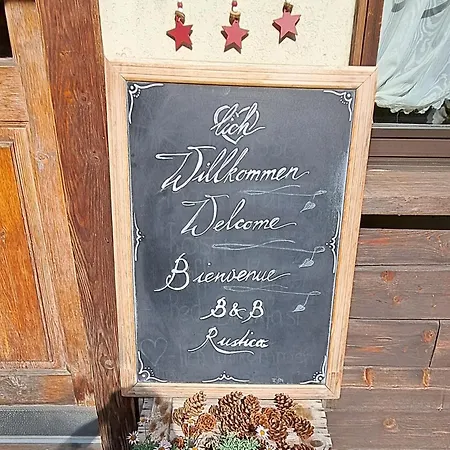 Willkommen
Welcome
Bienvenue
B&B
Rustica